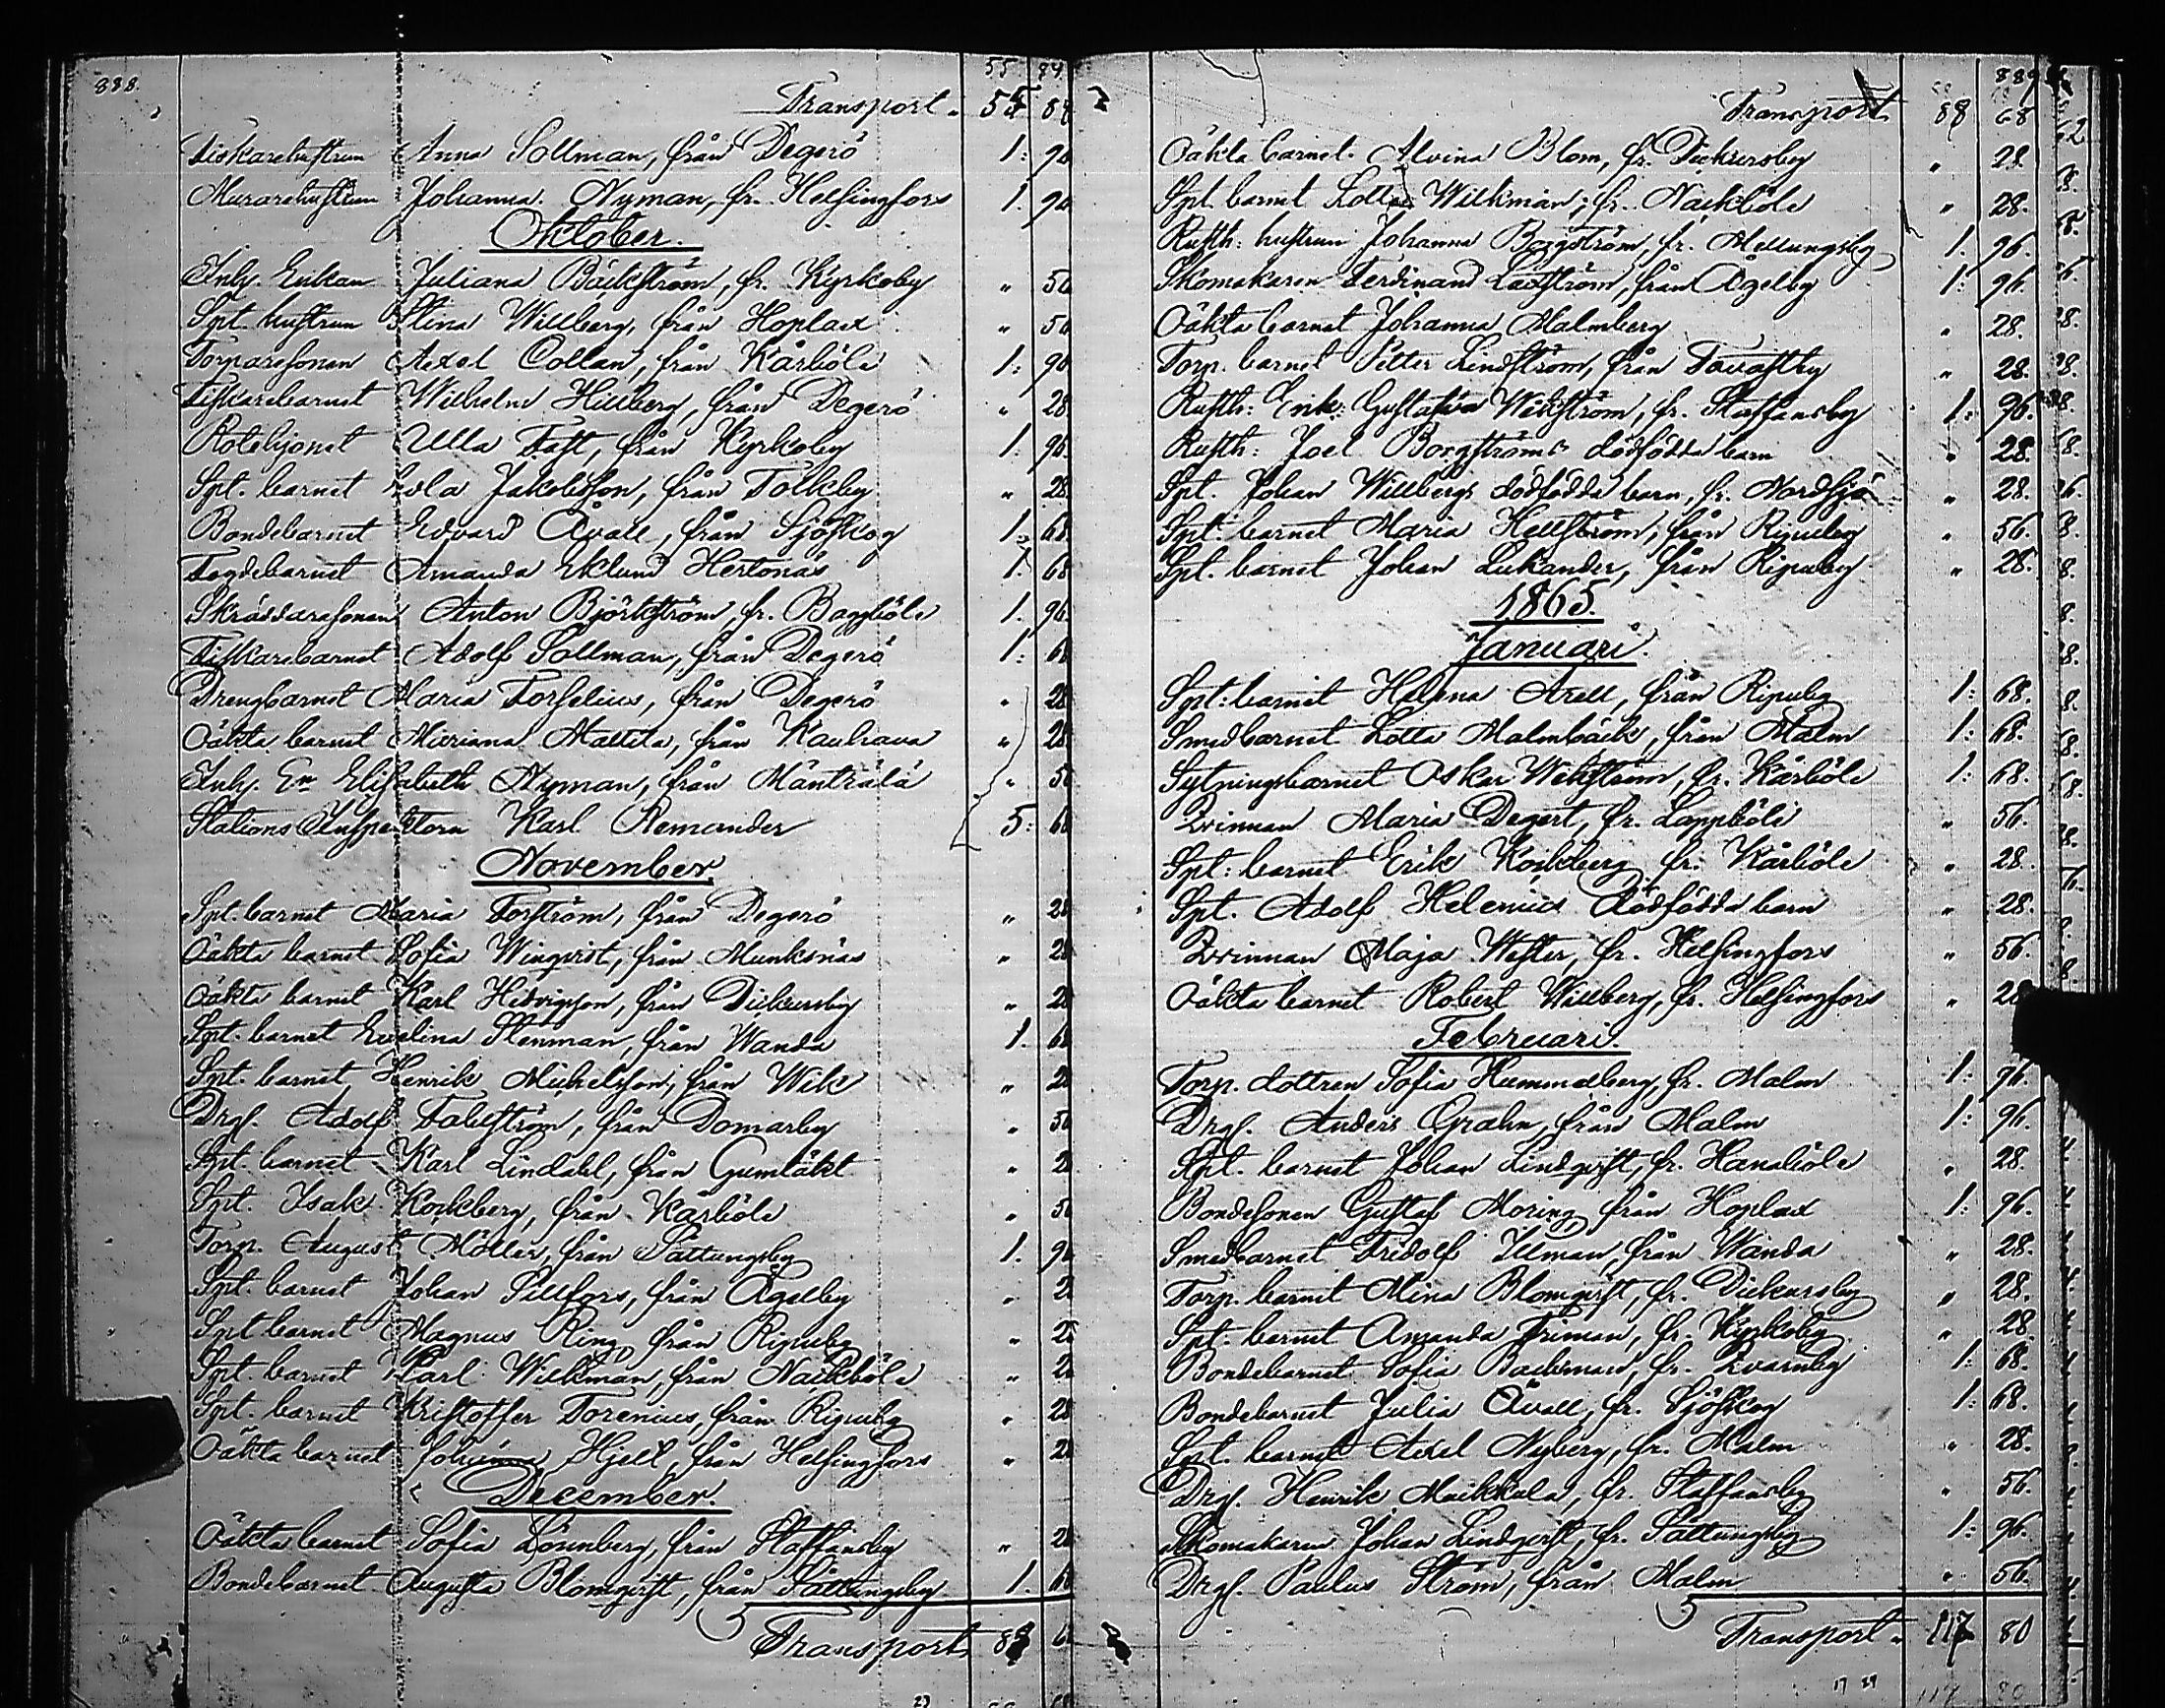 888.
55 84.
Transport. 55 84
Fiskarehustrun Anna Sollman, från Degerö 1: 96
Murarehustrun Johanna Nyman, fr. Helsingfors 1. 96
Oktober.
Inhy. Enkan Juliana Bäckström, fr. Kyrkoby " 56
Spt. hustrun Stina Willberg, från Hoplax " 56
Torparesonen Axel Collan, från Kårböle 1: 96
Fiskarebarnet Wilhelm Hillberg, från Degerö " 28
Rotehjonet Ulla Fast, från Kyrkoby 1. 96.
Spt. barnet Lola Jakobsson, från Tolkby " 28
Bondebarnet Edvard Åvall, från Sjöskog 1. 68.
Fogdebarnet Amanda Eklund Hertonäs 1. 68
Skräddaresonen Anton Björkström, fr. Baggböle 1. 96.
Fiskarebarnet Adolf Sollman, från Degerö 1: 68
Drengbarnet Maria Forselius, från Degerö " 28
Oäkta barnet Miriana Mattila, från Kauhava " 28
Inhy. En Elisabeth Nyman, från Mäntsälä " 56
Stations Inspektorn Karl Remander 5: 68
November.
Spt. barnet Maria Forström, från Degerö " 28
Oäkta barnet Sofia Winqvist, från Munksnäs " 28
Oäkta barnet Karl Hedvigsson, från Dickursby " 28
Spt. barnet Evelina Stenman, från Wanda 1. 68
Spt. barnet Henrik Michelsson, från Wik " 28
Drg. Adolf Fabström, från Domarby " 56
Spt. barnet Karl Lindahl, från Gumtäkt " 28
Spt. Isak Korkberg, från Kårböle " 56
Torp. August Möller, från Sattungsby 1. 96
Spt. barnet Johan Sillfors, från Ågelby " 28
Spt barnet Magnus Ring, från Ripuby " 28
Spt. barnet Karl Wilkman, från Nackböle " 28
Spt. barnet Kristoffer Torenius, från Ripuby " 28
Oäkta barnet Johanna Hjelt, från Helsingfors " 28
December.
Oäkta barnet Sofia Lönnberg, från Staffansby " 28
Bondebarnet Augusta Blomqvist, från Sattungsby 1. 68
Transport 88 68
889
Transport 88 68
Oäkta barnet Alvina Blom, fr. Dickursby " 28.
Spt. barnet Lotta Wilkman, fr. Nackböle " 28.
Rusth: hustrun Johanna Borgström, fr. Mellungsby 1. 96.
Skomakaren Ferdinand Lastström, från Ågelby 1: 96
Oäkta barnet Johanna Malmberg " 28.
Torp. barnet Petter Lindström, från Tavastby " 28.
Rusth: Enk: Gustafva Wikström, fr. Staffansby 1: 96.
Rusth: Joel Borgströms dödfödda barn " 28.
Spt. Johan Willbergs dödfödda barn, fr. Nordsjö " 28.
Spt. barnet Maria Hellström, från Ripuby " 56.
Spt. barnet Johan Lukander, från Ripuby " 28.
1865.
Januari.
Spt: barnet Helena Axell, från Ripuby 1: 68.
Smedbarnet Lotta Malmbäck, från Malm 1: 68.
Sytningsbarnet Oskar Wikström, fr. Kårböle 1: 68.
Qvinnan Maria Degert, fr. Lappböle " 56.
Spt: barnet Erik Korkberg fr. Kårböle " 28.
Spt. Adolf Helenius dödfödda barn " 28.
Qvinnan Maja Wester, fr. Helsingfors " 56.
Oäkta barnet Robert Willberg, fr. Helsingfors " 28
Februari.
Torp. dottren Sofia Hummelberg, fr. Malm 1: 96.
Drg. Anders Grahn, från Malm 1: 96.
Spt. barnet Johan Lindqvist, fr. Hanaböle " 28.
Bondesonen Gustaf Moring, från Hoplax 1: 96.
Smedbarnet Fridolf Illman, från Wanda " 28.
Torp. barnet Mina Blomqvist, fr. Dickursby " 28.
Spt. barnet Amanda Friman, fr. Kyrkoby " 28.
Bondebarnet Sofia Backman, fr. Qvarnby 1: 68.
Bondebarnet Julia Åvall, fr. Sjöskog 1: 68.
Spt. barnet Axel Nyberg, fr. Malm " 28.
Drg. Henrik Maikkala, fr. Staffansby " 56.
Skomakaren Johan Lindqvist, fr. Sattungsby 1: 96.
Drg. Paulus Ström, från Malm " 56.
Transport 117 80